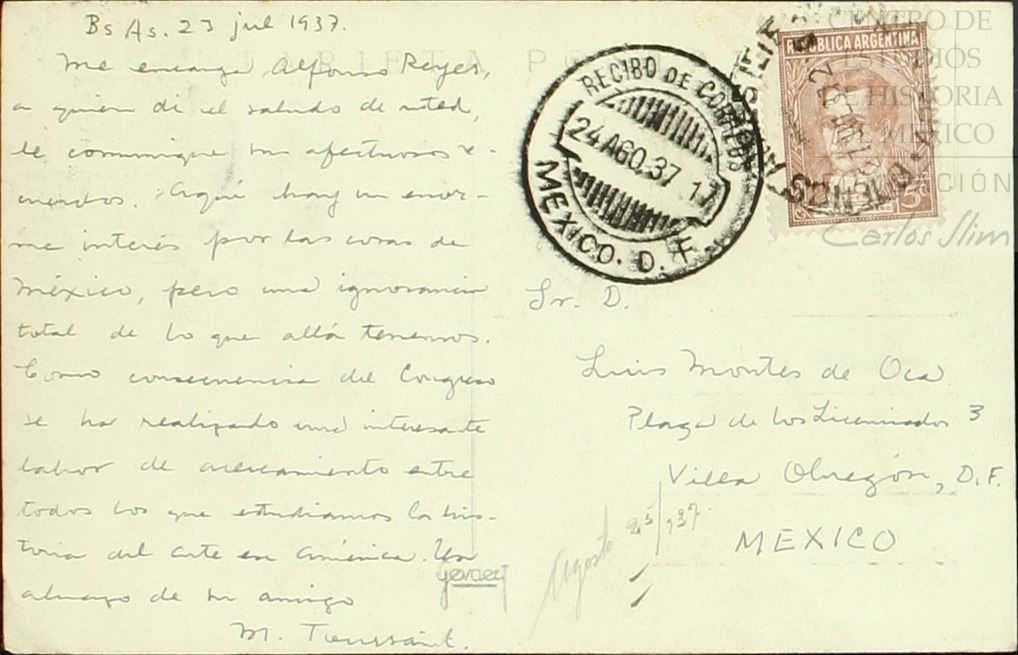 Bs As. 23 jul 1937.
TARJETA POSTAL
Me encarga Alfonso Reyes,
a quien di el saludo de usted,
le comunique sus afectuosos re-
cuerdos. Aquí hay un enor-
me interés por las cosas de
México, pero una ignorancia
total de lo que allá tenemos.
Como consecuencia del Congreso
se ha realizado una interesante
labor de acercamiento entre
todos los que estudiamos la his-
toria del arte en América. Un
abrazo de su amigo
M. Toussaint.
gevaert
RECIBO DE CORREOS
24 AGO. 37 17
MEXICO. D. F.
REPUBLICA ARGENTINA
5
CENTRO DE
ESTUDIOS
DE HISTORIA
DE MEXICO
Carlos Slim
Sr. D.
Luis Montes de Oca
Plaza de los Licenciados 3
Villa Obregón, D.F.
MEXICO
Agosto 25/937.